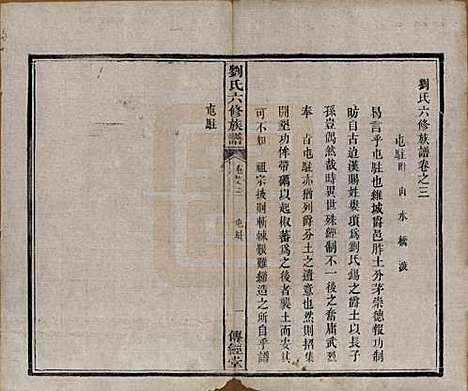 劉氏六修族譜卷之三
屯駐附 向 水 橋 渡
曷言乎屯駐也維城爵邑胙土分茅崇德報功制
昉自古迨漢賜姓婁項為劉氏錫之爵土以長子
孫豈偶然與異世殊經制不一後之奮庸武烈
奉 占屯駐亦猶列爵分土之遺意也然則招集
開墾功侔帶礪以起椒蕃為之後者襲土而安其
可不知 祖宗披荆斬棘艱難締造之所自乎譜
屯駐
劉氏六修族譜
卷之三
屯駐
一
傳經堂